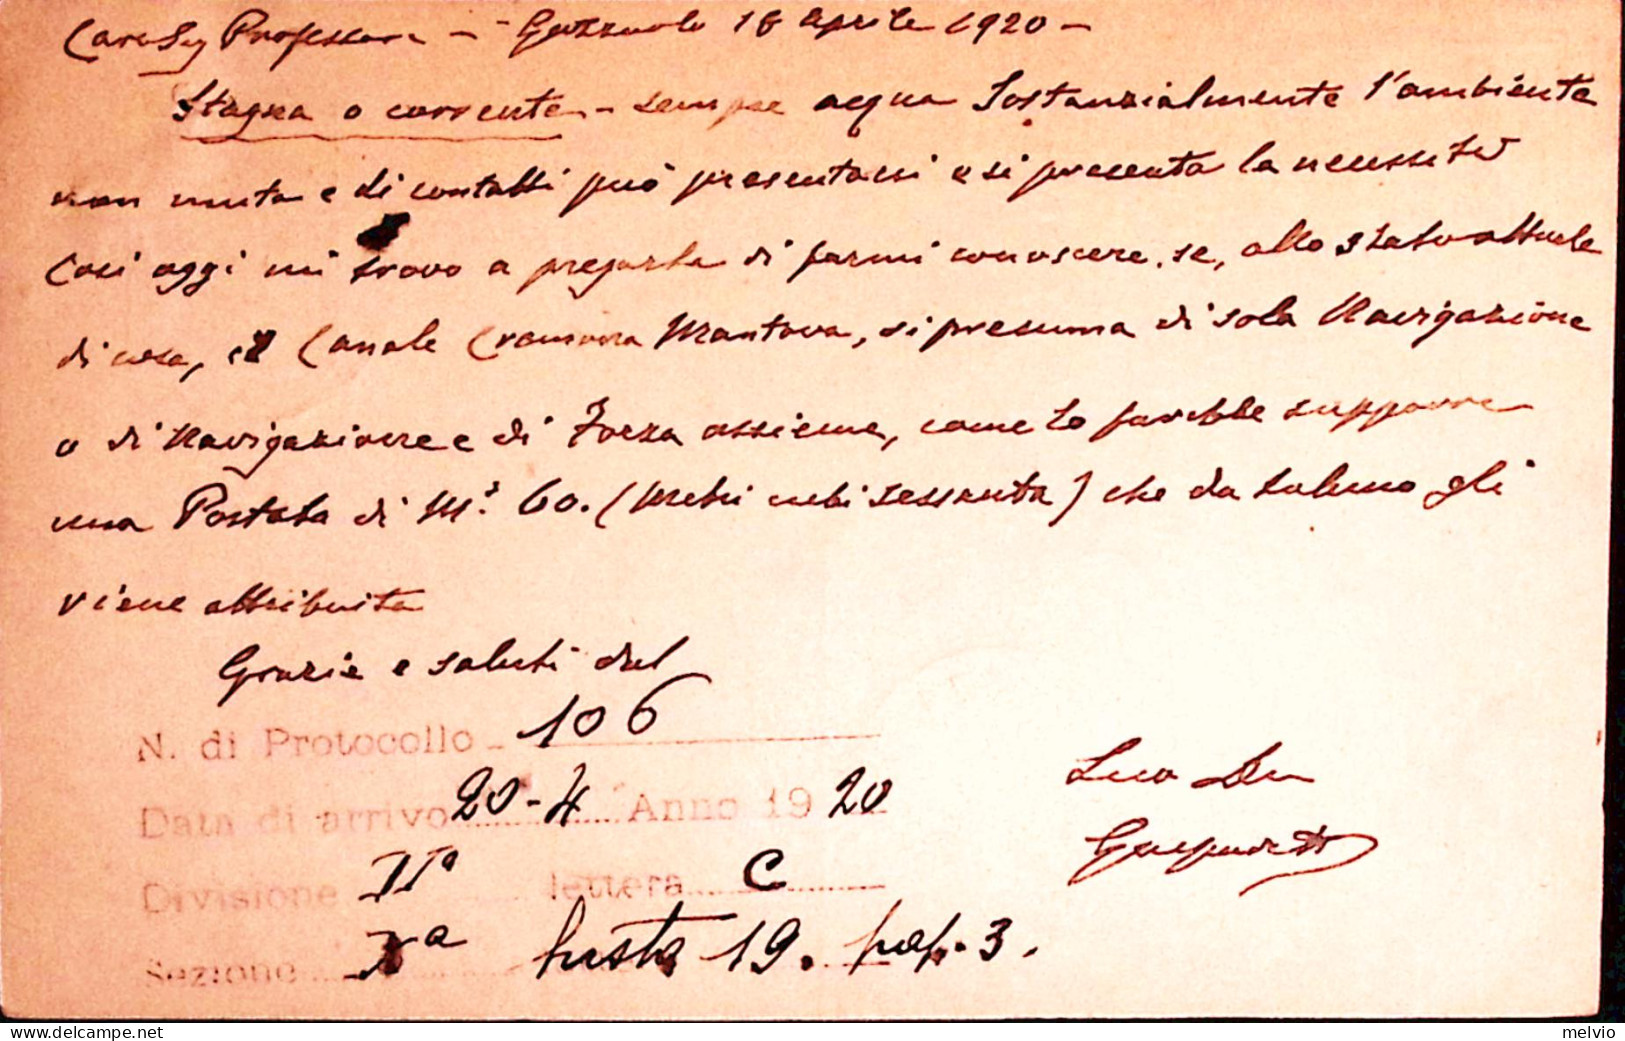 Caro Sig Professore - - Gazzuolo 18 aprile 1920 -
Stagna o corrente - sempre acqua sostanzialmente l'ambiente
non muta e di contatti può presentarsi e si presenta la necessità
Così oggi mi trovo a pregarla di farmi conoscere, se, allo stato attuale
di cose, il Canale Cremona Mantova, si presuma di sola Navigazione
o di Navigazione e di Forza assieme, come lo farebbe supporre
una Portata di M.³ 60. (Metri cubi sessanta) che da taluno gli
viene attribuita
Grazie e saluti dal
N. di Protocollo 106
Data di arrivo 20-4 Anno 1920
Suo
Divisione IIª lettera C
Sezione Iª busta 19. 3.
melvio